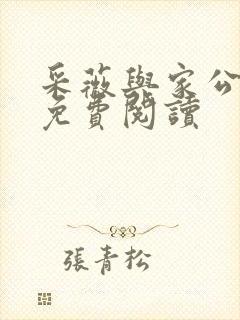 采薇與家公
免費閱讀
張青松